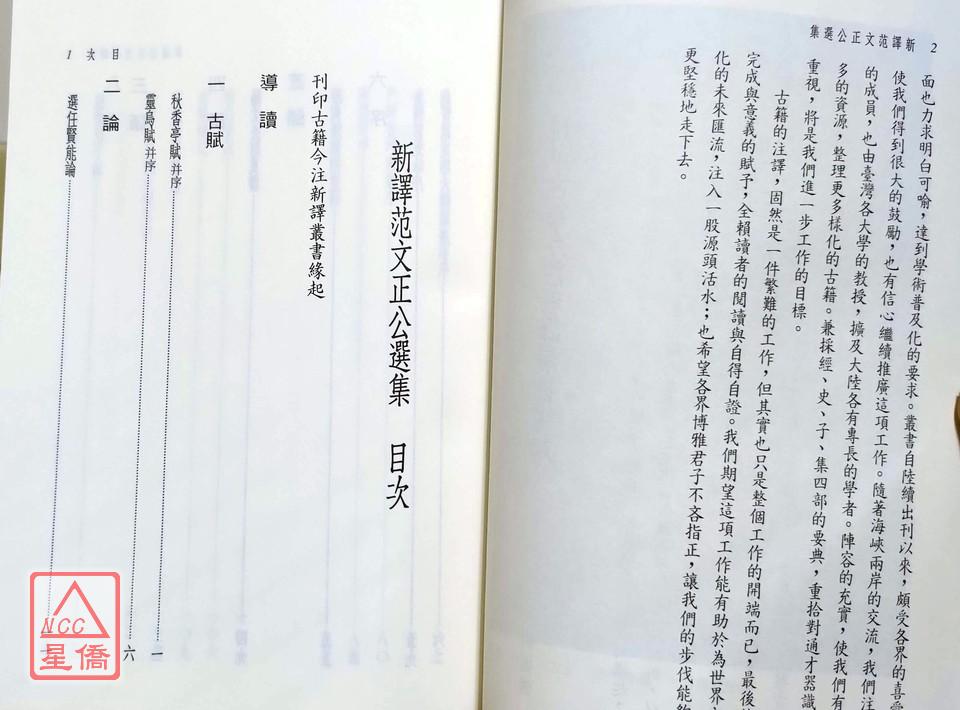 2 新譯范文正公選集
面也力求明白可喻，達到學術普及化的要求。叢書自陸續出刊以來，頗受各界的喜
使我們得到很大的鼓勵，也有信心繼續推廣這項工作。隨著海峽兩岸的交流，我們注
的成員，也由臺灣各大學的教授，擴及大陸各有專長的學者。陣容的充實，使我們有
多的資源，整理更多樣化的古籍。兼採經、史、子、集四部的要典，重拾對通才器識
重視，將是我們進一步工作的目標。
古籍的注譯，固然是一件繁難的工作，但其實也只是整個工作的開端而已，最後
完成與意義的賦予，全賴讀者的閱讀與自得自證。我們期望這項工作能有助於為世界
化的未來匯流，注入一股源頭活水；也希望各界博雅君子不吝指正，讓我們的步伐能夠
更堅穩地走下去。
新譯范文正公選集 目次
刊印古籍今注新譯叢書緣起
導讀
一 古賦
秋香亭賦并序 一
靈烏賦并序 六
二 論
選任賢能論
目次 1
NCC
星僑